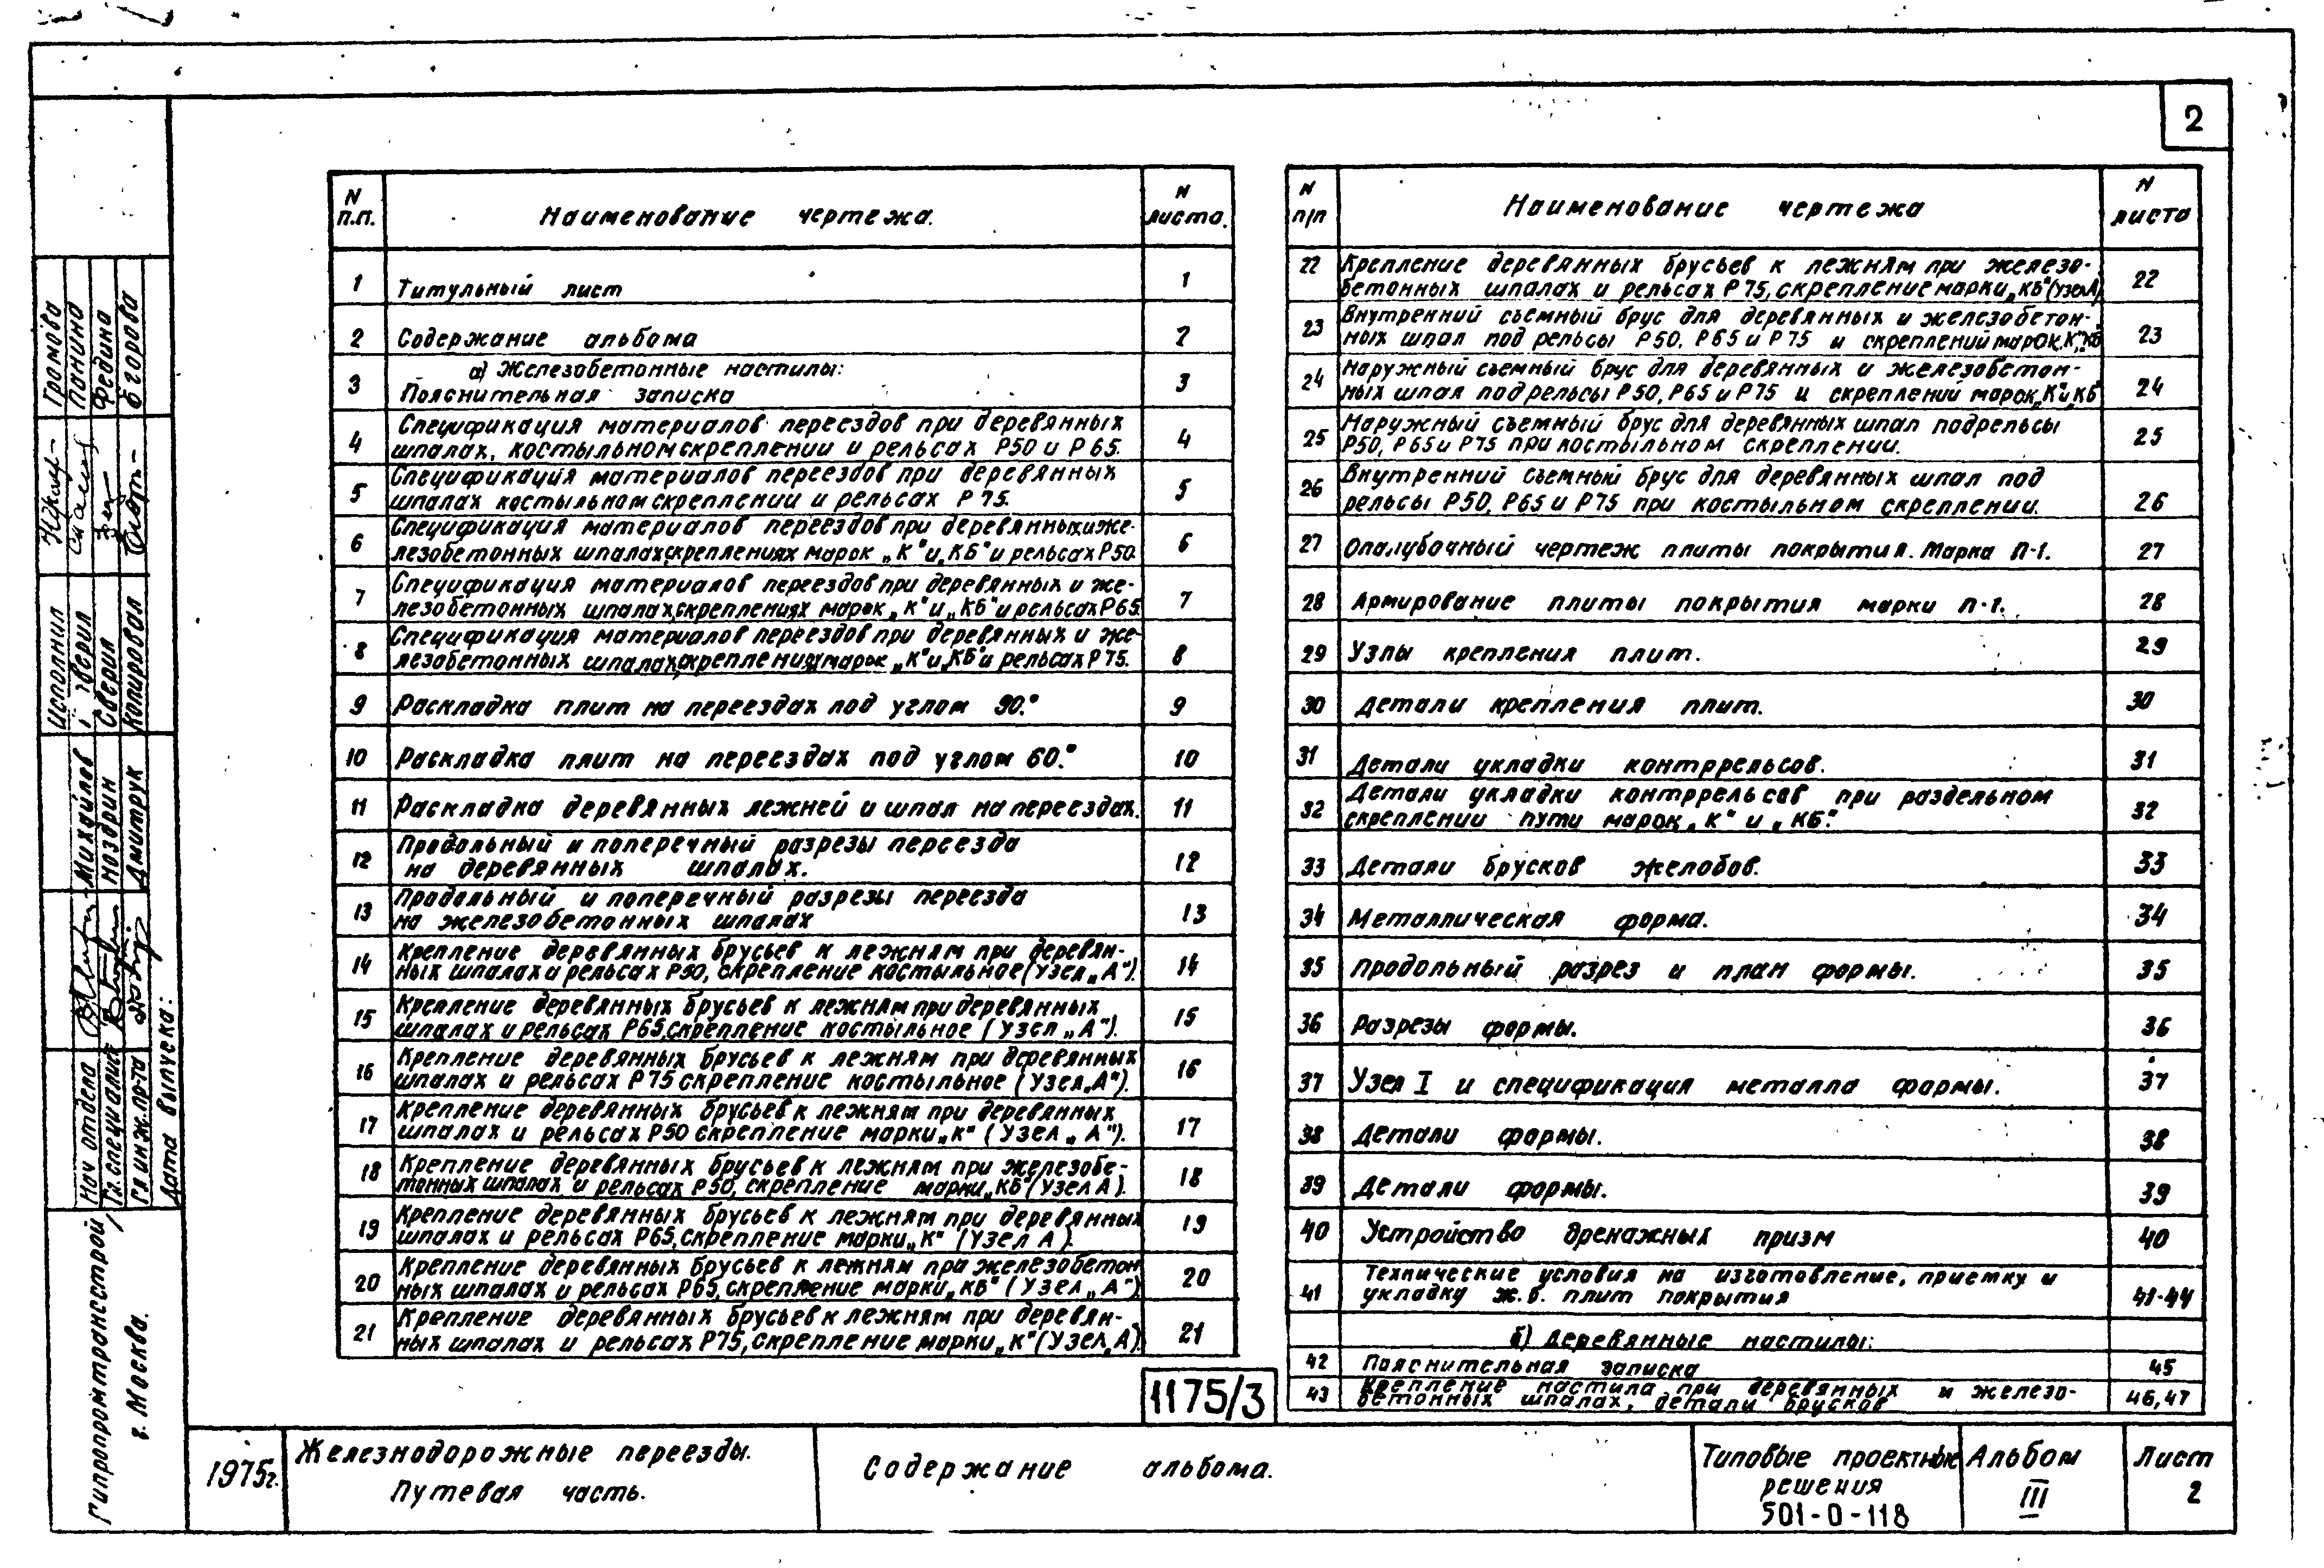 2
N п.п.
Наименование чертежа.
N листа.
1 Титульный лист 1
2 Содержание альбома 2
а) Железобетонные настилы:
3 Пояснительная записка 3
4 Спецификация материалов переездов при деревянных
шпалах, костыльном скреплении и рельсах Р50 и Р65. 4
5 Спецификация материалов переездов при деревянных
шпалах костыльном скреплении и рельсах Р75. 5
6 Спецификация материалов переездов при деревянных и же-
лезобетонных шпалах, скреплениях марок „К" и „КБ" и рельсах Р50. 6
7 Спецификация материалов переездов при деревянных и же-
лезобетонных шпалах, скреплениях марок „К" и „КБ" и рельсах Р65. 7
8 Спецификация материалов переездов при деревянных и же-
лезобетонных шпалах, скреплениях марок „К" и „КБ" и рельсах Р75. 8
9 Раскладка плит на переездах под углом 90.° 9
10 Раскладка плит на переездах под углом 60.° 10
11 Раскладка деревянных лежней и шпал на переездах. 11
12 Продольный и поперечный разрезы переезда
на деревянных шпалах. 12
13 Продольный и поперечный разрезы переезда
на железобетонных шпалах 13
14 Крепление деревянных брусьев к лежням при деревян-
ных шпалах и рельсах Р50, скрепление костыльное (Узел „А"). 14
15 Крепление деревянных брусьев к лежням при деревянных
шпалах и рельсах Р65, скрепление костыльное (Узел „А"). 15
16 Крепление деревянных брусьев к лежням при деревянных
шпалах и рельсах Р75 скрепление костыльное (Узел „А"). 16
17 Крепление деревянных брусьев к лежням при деревянных
шпалах и рельсах Р50 скрепление марки „К" (Узел „А"). 17
18 Крепление деревянных брусьев к лежням при железобе-
тонных шпалах и рельсах Р50, скрепление марки „КБ" (Узел А). 18
19 Крепление деревянных брусьев к лежням при деревянных
шпалах и рельсах Р65, скрепление марки „К" (Узел А). 19
20 Крепление деревянных брусьев к лежням при железобетон
ных шпалах и рельсах Р65, скрепление марки „КБ" (Узел „А"). 20
21 Крепление деревянных брусьев к лежням при деревян-
ных шпалах и рельсах Р75, скрепление марки „К" (Узел „А"). 21
N п/п
Наименование чертежа
N листа
22 Крепление деревянных брусьев к лежням при железо-
бетонных шпалах и рельсах Р75, скрепление марки „КБ" (Узел А) 22
23 Внутренний съемный брус для деревянных и железобетон-
ных шпал под рельсы Р50, Р65 и Р75 и скреплений марок „К", „КБ" 23
24 Наружный съемный брус для деревянных и железобетон-
ных шпал под рельсы Р50, Р65 и Р75 и скреплений марок „К" и „КБ" 24
25 Наружный съемный брус для деревянных шпал под рельсы
Р50, Р65 и Р75 при костыльном скреплении. 25
26 Внутренний съемный брус для деревянных шпал под
рельсы Р50, Р65 и Р75 при костыльном скреплении. 26
27 Опалубочный чертеж плиты покрытия. Марка П-1. 27
28 Армирование плиты покрытия марки П-1. 28
29 Узлы крепления плит. 29
30 Детали крепления плит. 30
31 Детали укладки контррельсов. 31
32 Детали укладки контррельсов при раздельном
скреплении пути марок „К" и „КБ". 32
33 Детали брусков желобов. 33
34 Металлическая форма. 34
35 Продольный разрез и план формы. 35
36 Разрезы формы. 36
37 Узел I и спецификация металла формы. 37
38 Детали формы. 38
39 Детали формы. 39
40 Устройство дренажных призм 40
41 Технические условия на изготовление, приемку и
укладку ж.б. плит покрытия 41-44
б) Деревянные настилы:
42 Пояснительная записка 45
43 Крепление настила при деревянных и железо-
бетонных шпалах, детали брусков 46, 47
1175/3
1975г.
Железнодорожные переезды.
Путевая часть.
Содержание альбома.
Типовые проектные
решения
501-0-118
Альбом
III
Лист
2
Гипропромтрансстрой
г. Москва.
Нач отдела Михайлев
Гл. специалист Ноздрин
Гл инж. пр-та Дмитрук
Дата выпуска:
Исполнил Громова
Панина
Сверил Федина
Копировал Егорова